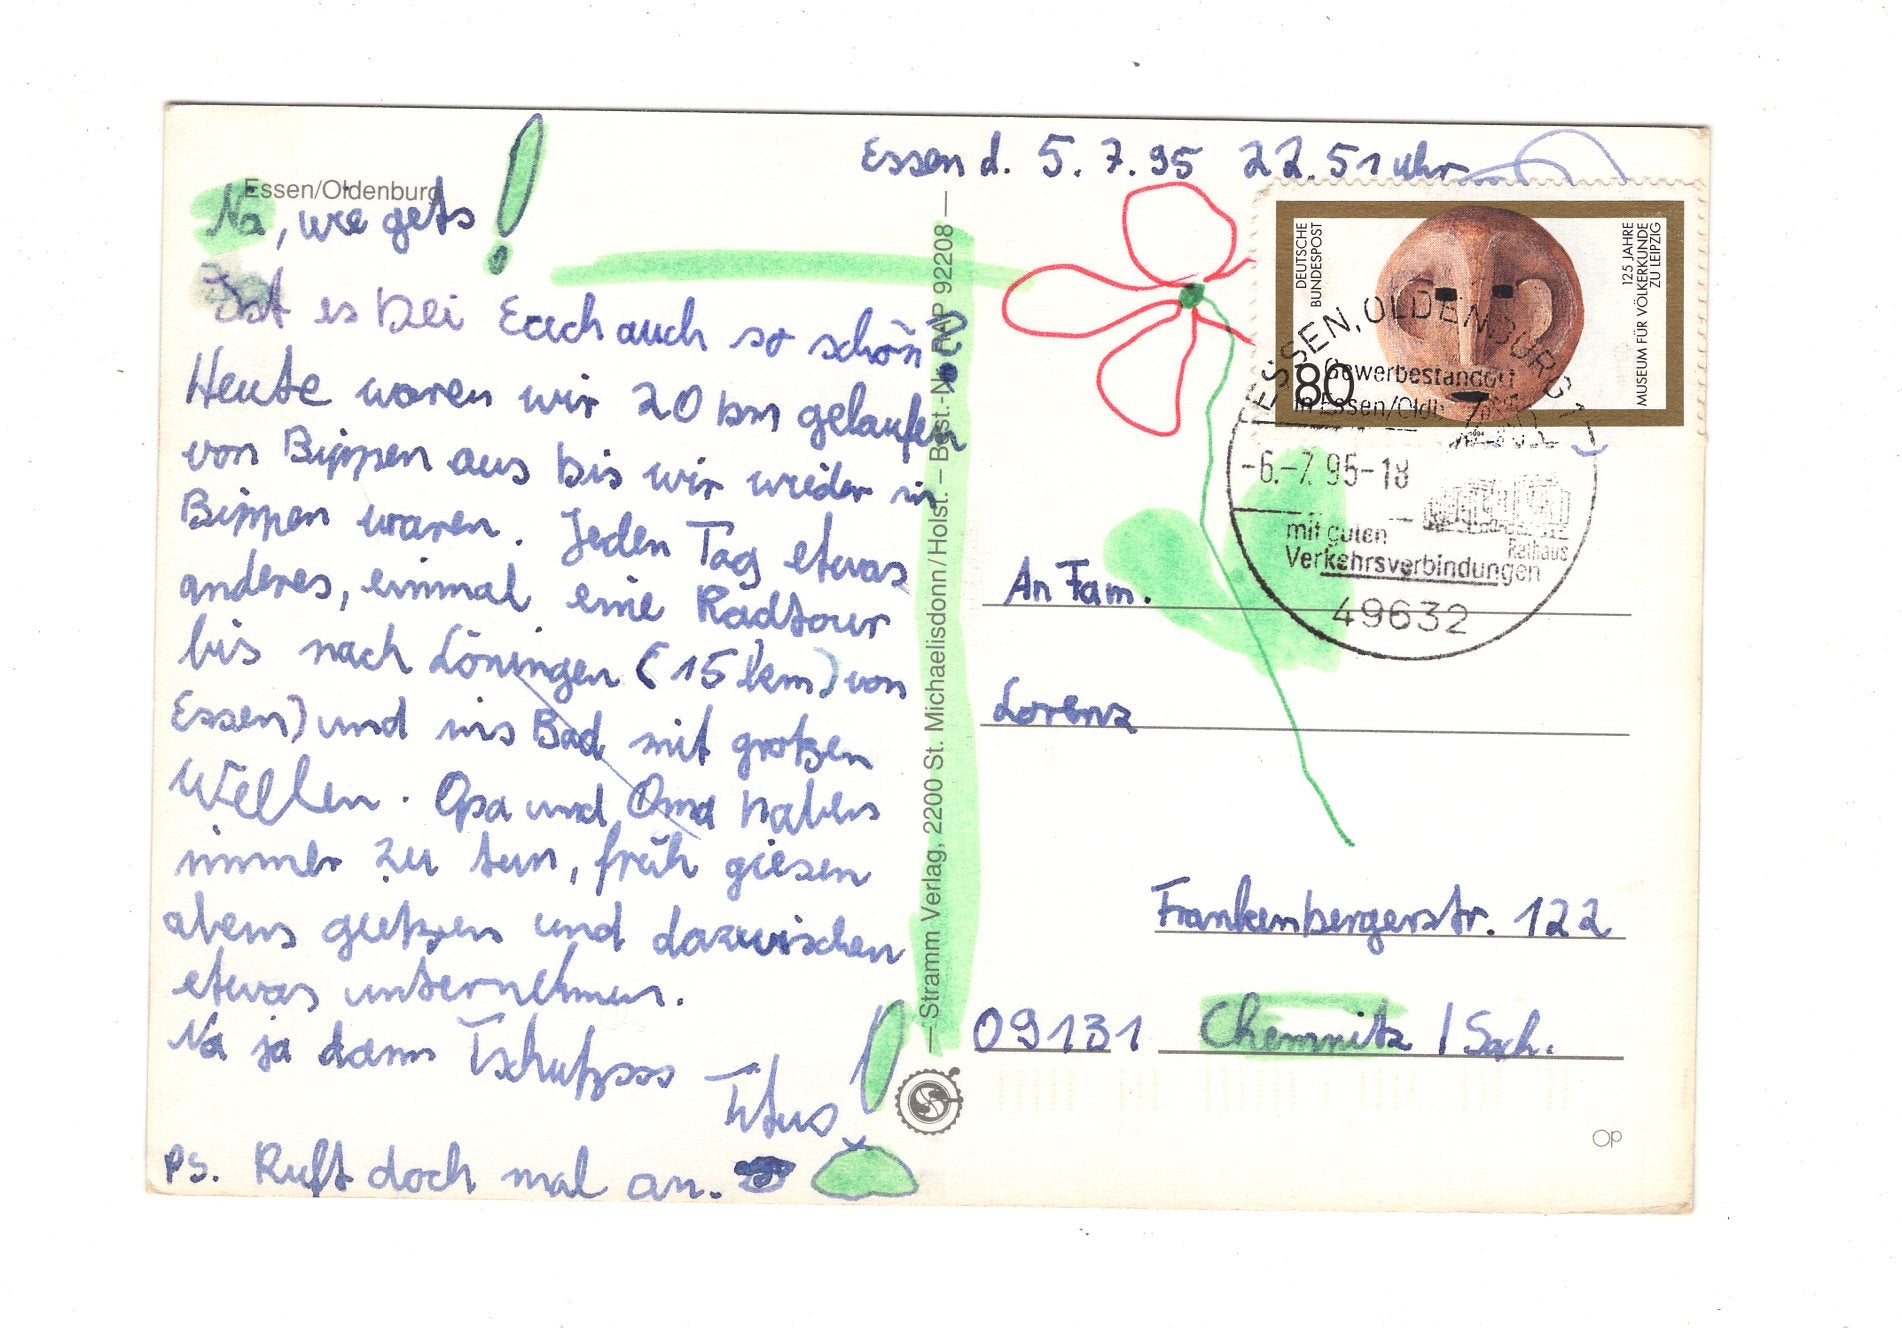 Essen d. 5.7.95 22.51 uhr
Essen/Oldenburg
Na, wie gets!
Ist es bei Euch auch so schön?
Heute waren wir 20 km gelaufen
von Bippen aus bis wir wieder in
Bippen waren. Jeden Tag etwas
anderes, einmal eine Radtour
bis nach Löningen (15 km) von
Essen) und ins Bad mit großen
Wellen. Opa und Oma haben
immer zu tun, früh giesen
abens gießen und dazwischen
etwas unternehmen.
Na ja dann Tschußsss
Titus!
PS. Ruft doch mal an.
— Stramm Verlag, 2200 St. Michaelisdonn/Holst. – Best.-Nr. RAP 92208 —
DEUTSCHE
BUNDESPOST
80
125 JAHRE
MUSEUM FÜR VÖLKERKUNDE
ZU LEIPZIG
ESSEN, OLDENBURG 1
Gewerbestandort
in Essen/Oldb
-6.-7.95-18
mit guten
Verkehrsverbindungen
Rathaus
49632
An Fam.
Lorenz
Frankenbergerstr. 122
09131 Chemnitz / Sach.
OP